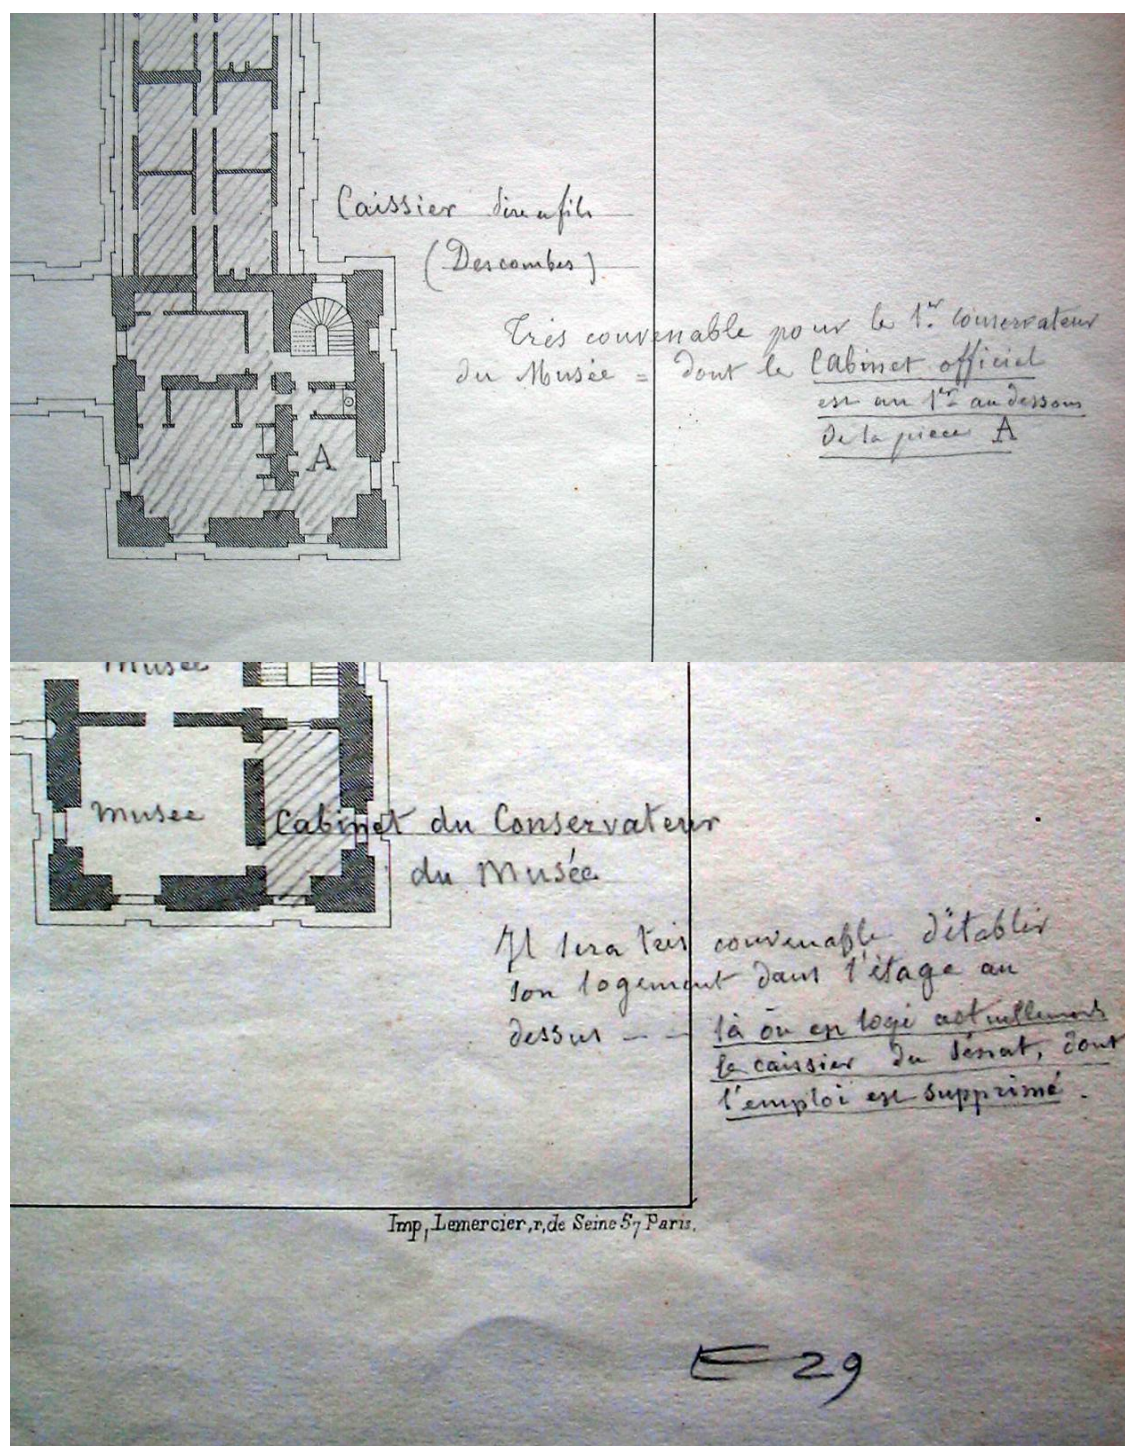 Caissier
(Descombes)
Très convenable pour le 1er Conservateur
du Musée = dont le Cabinet officiel
est au 1er au dessous
de la pièce A
A
Musée
Musée
Cabinet du Conservateur
du Musée
Il sera très convenable d'établir
son logement dans l'étage au
dessus — — là où est logé actuellement
le caissier du Sénat, dont
l'emploi est supprimé.
Imp. Lemercier, r. de Seine 57 Paris.
E 29